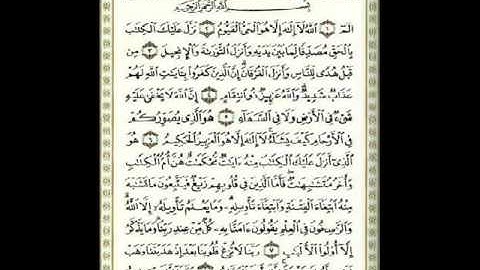 بسم الله الرحمن الرحيم
الٓمٓ ١ ٱللَّهُ لَآ إِلَٰهَ إِلَّا هُوَ ٱلْحَىُّ ٱلْقَيُّومُ ٢ نَزَّلَ عَلَيْكَ ٱلْكِتَٰبَ
بِٱلْحَقِّ مُصَدِّقًا لِّمَا بَيْنَ يَدَيْهِ وَأَنزَلَ ٱلتَّوْرَىٰةَ وَٱلْإِنجِيلَ ٣ مِن
قَبْلُ هُدًى لِّلنَّاسِ وَأَنزَلَ ٱلْفُرْقَانَ إِنَّ ٱلَّذِينَ كَفَرُوا۟ بِـَٔايَٰتِ ٱللَّهِ لَهُمْ
عَذَابٌ شَدِيدٌ وَٱللَّهُ عَزِيزٌ ذُو ٱنتِقَامٍ ٤ إِنَّ ٱللَّهَ لَا يَخْفَىٰ عَلَيْهِ
شَىْءٌ فِى ٱلْأَرْضِ وَلَا فِى ٱلسَّمَآءِ ٥ هُوَ ٱلَّذِى يُصَوِّرُكُمْ
فِى ٱلْأَرْحَامِ كَيْفَ يَشَآءُ لَآ إِلَٰهَ إِلَّا هُوَ ٱلْعَزِيزُ ٱلْحَكِيمُ ٦ هُوَ
ٱلَّذِىٓ أَنزَلَ عَلَيْكَ ٱلْكِتَٰبَ مِنْهُ ءَايَٰتٌ مُّحْكَمَٰتٌ هُنَّ أُمُّ ٱلْكِتَٰبِ
وَأُخَرُ مُتَشَٰبِهَٰتٌ فَأَمَّا ٱلَّذِينَ فِى قُلُوبِهِمْ زَيْغٌ فَيَتَّبِعُونَ مَا تَشَٰبَهَ
مِنْهُ ٱبْتِغَآءَ ٱلْفِتْنَةِ وَٱبْتِغَآءَ تَأْوِيلِهِۦ وَمَا يَعْلَمُ تَأْوِيلَهُۥٓ إِلَّا ٱللَّهُ
وَٱلرَّٰسِخُونَ فِى ٱلْعِلْمِ يَقُولُونَ ءَامَنَّا بِهِۦ كُلٌّ مِّنْ عِندِ رَبِّنَا وَمَا يَذَّكَّرُ
إِلَّآ أُو۟لُوا۟ ٱلْأَلْبَٰبِ ٧ رَبَّنَا لَا تُزِغْ قُلُوبَنَا بَعْدَ إِذْ هَدَيْتَنَا وَهَبْ